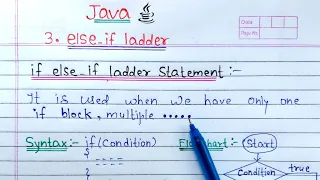 Java
Date
Page No.
3. else_if ladder
if else_if ladder statement :-
It is used when we have only one
if block, multiple .....
Syntax:- if(Condition) Flowchart:- Start
{ ----
}
Condition true